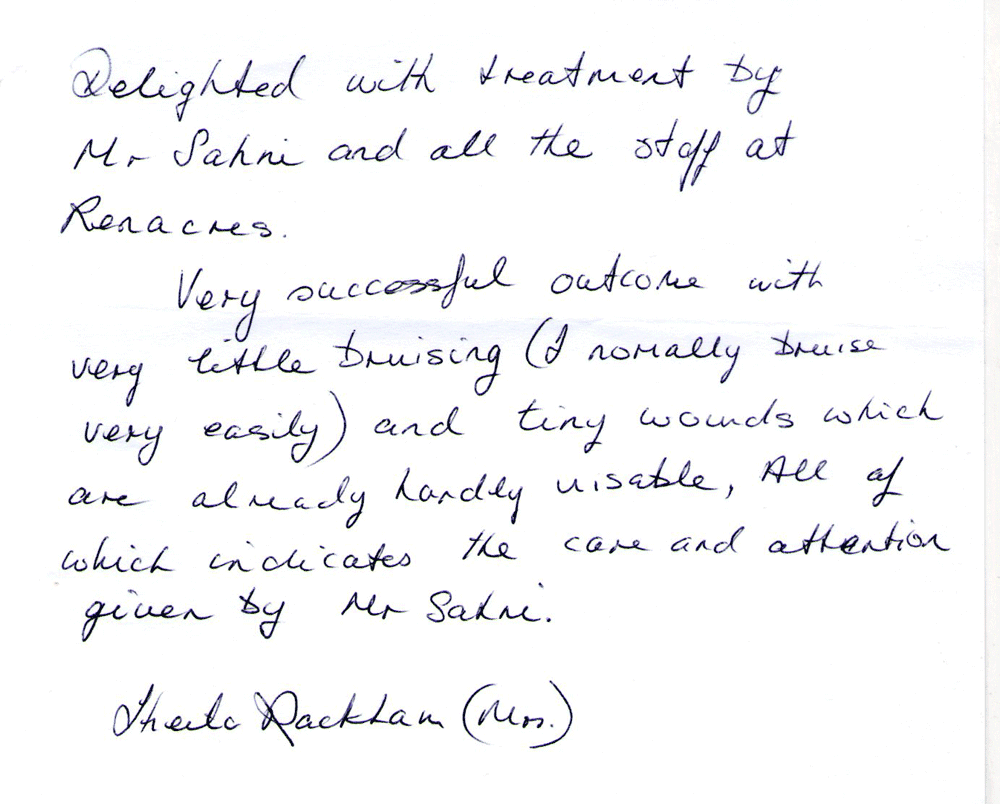 Delighted with treatment by
Mr Sahni and all the staff at
Renacres.
Very successful outcome with
very little bruising (I normally bruise
very easily) and tiny wounds which
are already hardly visable, All of
which indicates the care and attention
given by Mr Sahni.
Sheila Rackham (Mrs.)